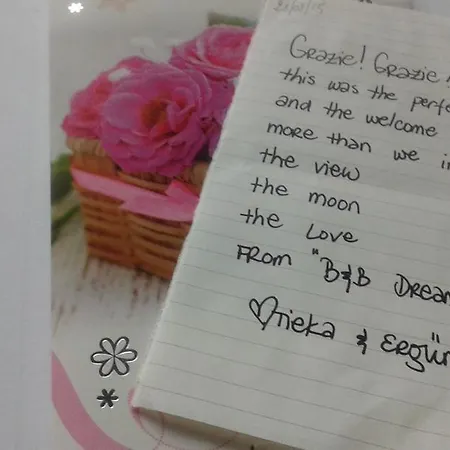 Grazie! Grazie!
this was the
and the welcome
more than we
the view
the moon
the Love
From "B&B
♡Tieka & Ergün